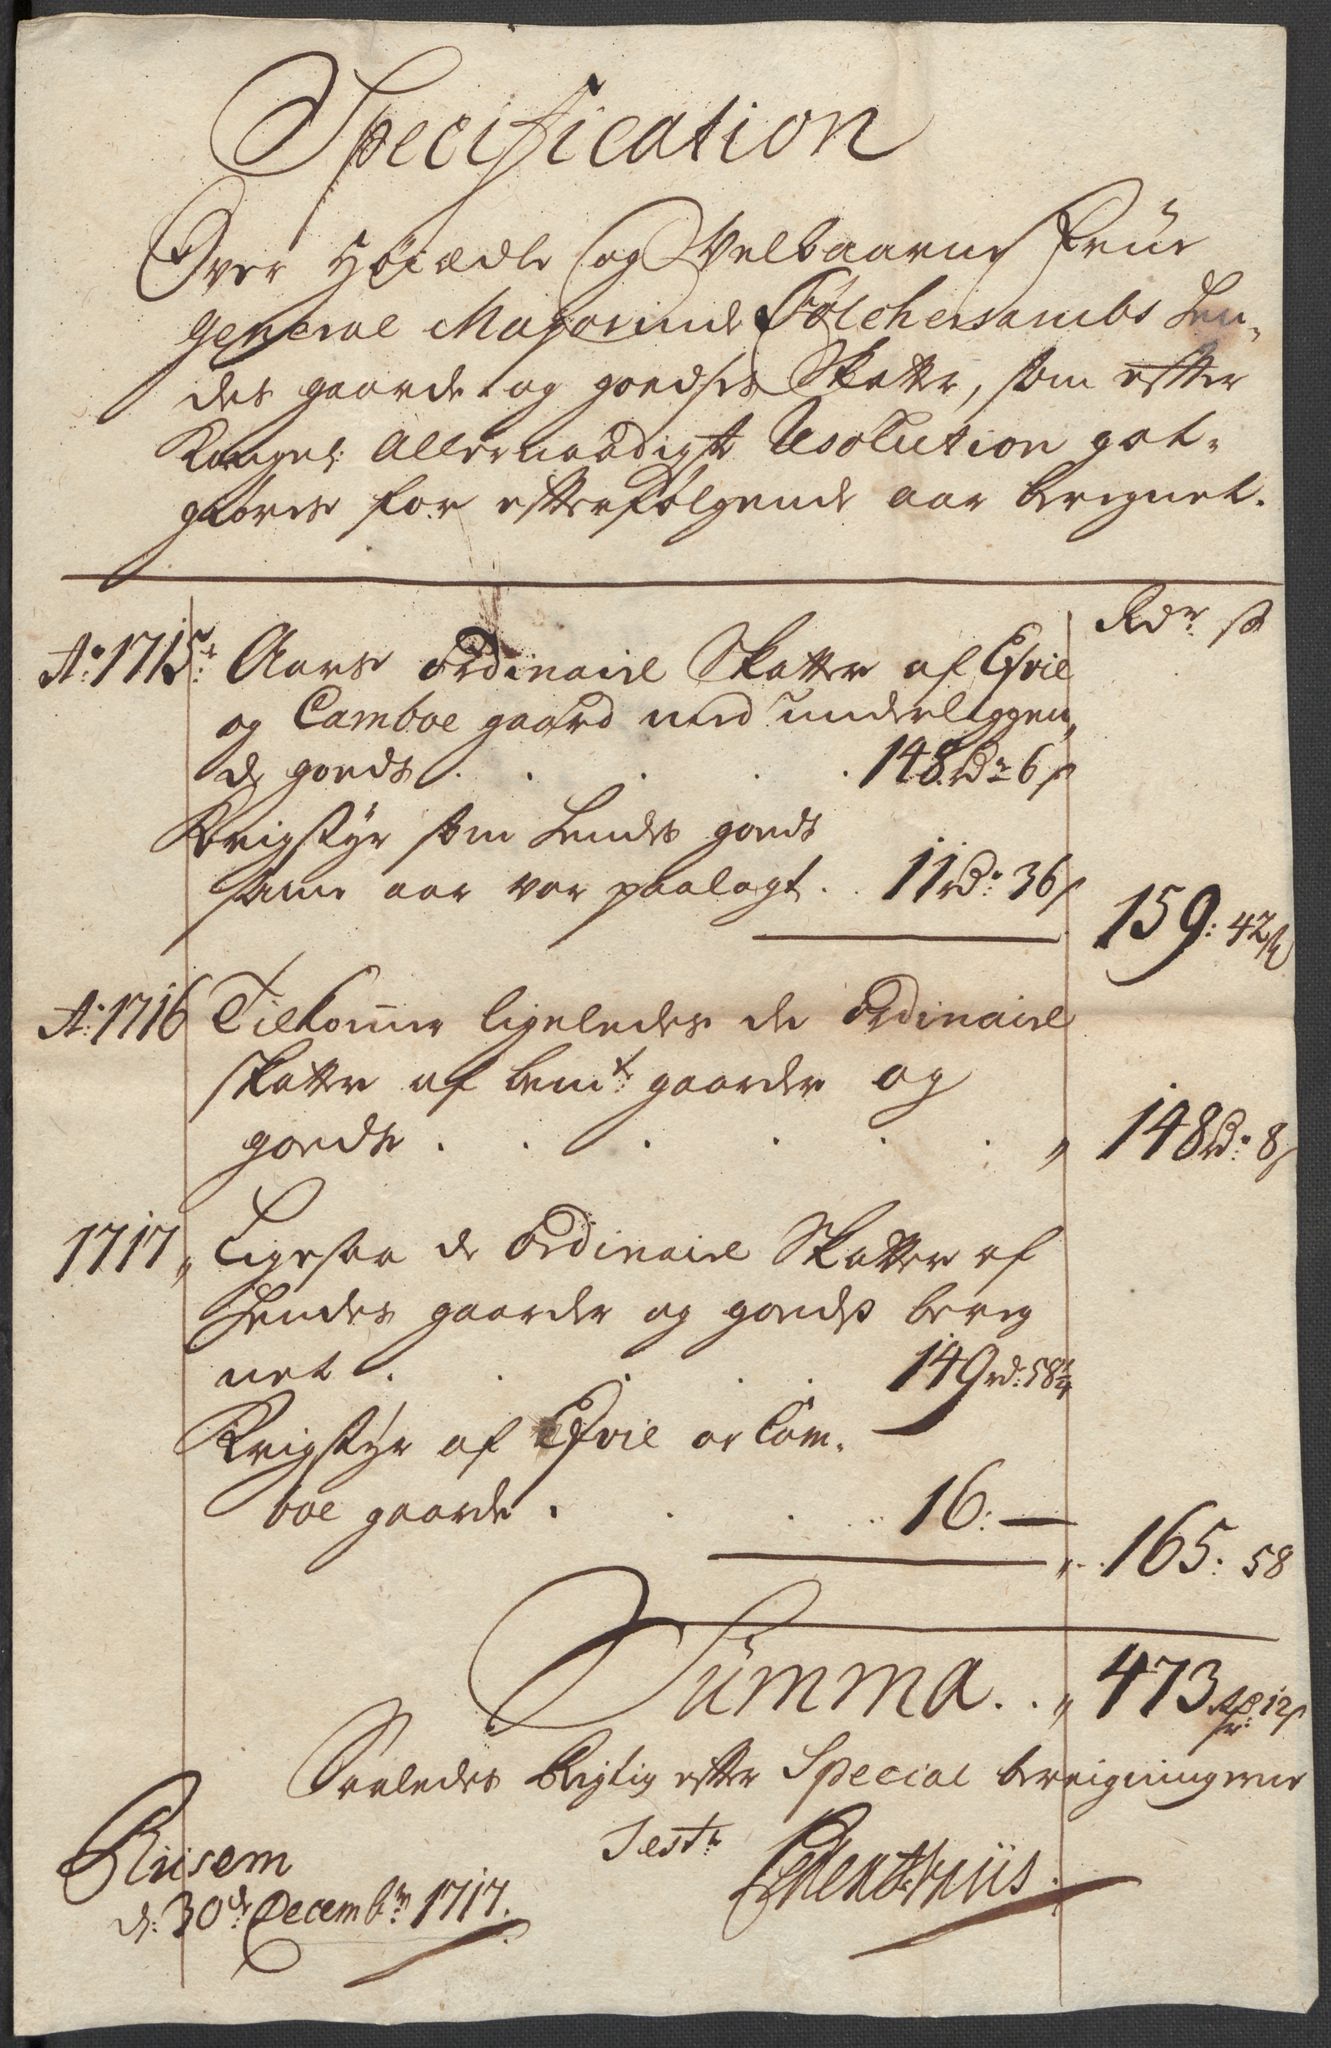 Specification
Over Höiædle og Velbaarne Frue
General Majorinde Tolchersambs Hen-
des gaarde og goedses Skatter, som efter
Kongel: Allernaadigste Resolution got-
giøres for efterfølgende aar beregnet.
Rdr ß
Ao: 1715: Aars Ordinaire Skatter af Esvie
og Camboe gaard med underliggen-
de goeds . . . . . 148 Rdr 6 ß
Krigstyr som Hendes goeds
samme aar var paalagt . . 11 rdr: 36 ß
159: 42 ß
Ao: 1716 Tilkommer ligeledes de Ordinaire
skatter af bemte gaarder og
goeds . . . . . " 148 Rdr: 8 ß
1717 " Ligesaa de Ordinaire Skatter af
Hendes gaarder og goedß bereg
net . . . . . 149 rd: 58 1/4
Krigstyr af Esvie oc Cam-
boe gaarde . . . . 16: —
" . . 165: 58
Summa . . " 473 Rdr 12 ß
Saaledes Rigtig efter Special beregningerne
Test:
Riisem
d: 30de Decembr 1717.